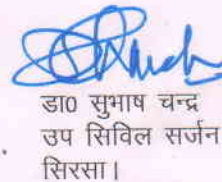 डा0 सुभाष चन्द्र
उप सिविल सर्जन
सिरसा।